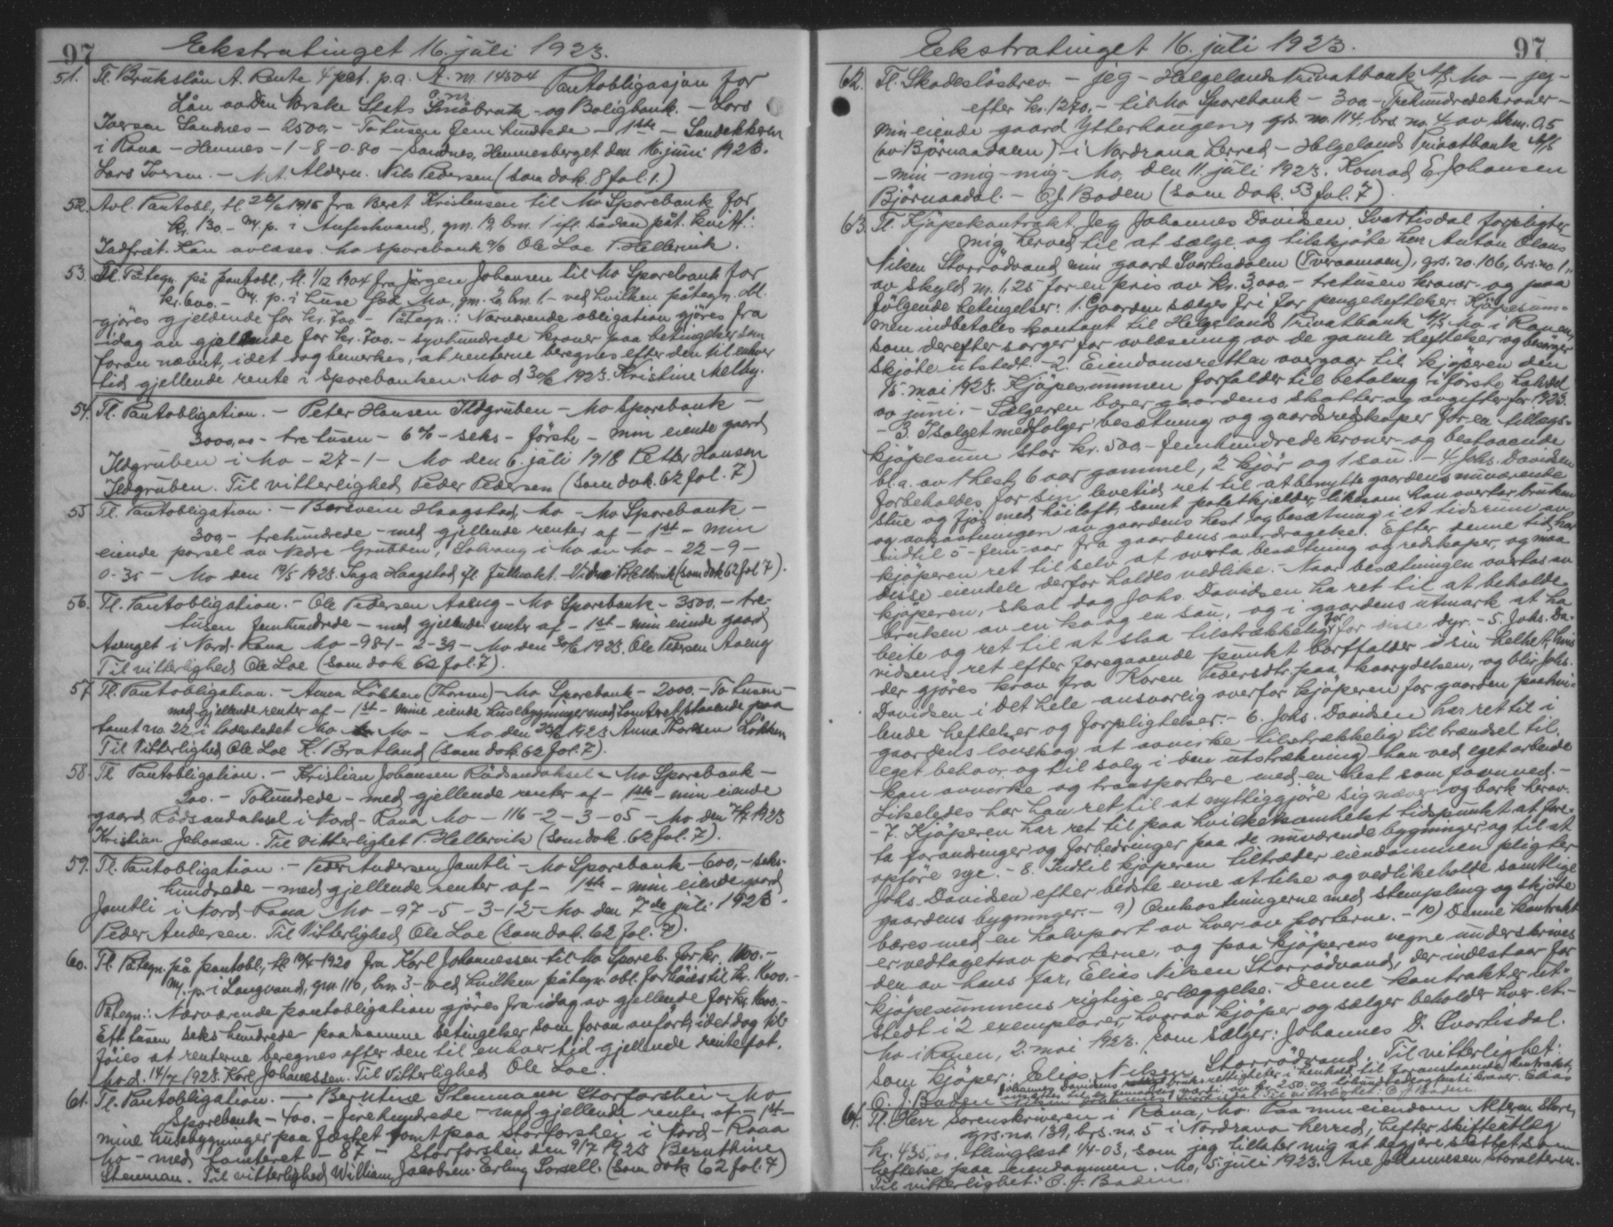 97 Ekstratinget 16. juli 1923.
51. Tl. Brukslån A. Rente 4 pct. p.a. A. nr. 14504 Pantobligasjon for
Lån av Den Norske Stats Småbruk- og Boligbank. - Lars
Iversen Sandnes - 2500,- To tusen fem hundrede - 1ste -
i Rana - Hemnes - 1 - 8 - 0.80 - Sandnes, Hemnesberget den 16. juni 1923.
Lars Iversen. - Nils Pedersen (som dok. 8 fol. 1.)
52. Avl. Pantobl., tl. 1916 fra Beret Kristensen til Mo Sparebank for
kr. 130.- m. p. i gnr. bnr. 1 påt. kvitt.:
Indfriet. Kan avlæses. Mo sparebank Ole Loe P. Hellervik.
53. Tl. Påtegn. på pantobl., tl. 1/12 1904 fra Jørgen Johansen til Mo Sparebank for
kr. 600.- m. p. i huse Mo, gnr. bnr. 1 - ved hvilken påtegn. obl.
gjöres gjeldende for kr. 700.- Påtegn.: Nærværende obligation gjöres fra
idag av gjeldende for kr. 700.- syvhundrede kroner paa betingelser som
foran nævnt, idet dog bemerkes, at renterne beregnes efter den til enhver
tid gjellende rente i sparebanken. Mo d. 30/6 1923. Kristine Melby.
54. Tl. Pantobligation. - Peter Hansen Ildgruben - Mo Sparebank -
3000,00 - tre tusen - 6% - seks - förste - min eiende gaard
Ildgruben i Mo - 27 - 1 - Mo den 6. juli 1918 Petter Hansen
Ildgruben. Til vitterlighed Peder Pedersen (som dok. 62 fol. 7)
55. Tl. Pantobligation. - Haagstad, Mo - Mo Sparebank -
300,- trehundrede - med gjellende renter af - 1st - min
eiende parsel av Nedre Grubben, Solvang i Mo av Mo - 22 - 9 -
0-35 - Mo den 19/5 1923. Haagstad fl. fullmakt. (som dok 62 fol 7).
56. Tl. Pantobligation. - Ole Pedersen Aaeng - Mo Sparebank - 3500,- tre-
tusen femhundrede - med gjellende renter af - 1st - min eiende gaard
Aaenget i Nord-Rana Mo - 98 - 2 - 39 - Mo den 30/6 1923. Ole Pedersen Aaeng
Til vitterlighed Ole Loe (som dok 62 fol. 7).
57. Tl. Pantobligation. - Anna Løkken (Thorsen) - Mo Sparebank - 2000,- To tusen -
med gjellende renter af - 1st - mine eiende husebygninger med tomteret staaende paa
tomt no. 22 i ladestedet Mo Mo - Mo den 1923 Anna Thorsen Løkken
Til Vitterlighed Ole Loe K. Bratland (som dok. 62 fol. 7).
58. Tl. Pantobligation. - Kristian Johansen Rödsandaksel - Mo Sparebank -
200.- Tohundrede - med gjellende renter af - 1ste - min eiende
gaard Rödsandaksel i Nord-Rana Mo - 116 - 2 - 3 - 05 - Mo den 7/7 1923
Kristian Johansen. Til Vitterlighet P. Hellervik (som dok. 62 fol. 7).
59. Tl. Pantobligation. - Peder Andersen Jamtli - Mo Sparebank - 600,- seks-
hundrede - med gjellende renter af - 1ste - min eiende gaard
Jamtli i Nord-Rana Mo - 97 - 5 - 3 - 12 - Mo den 7de juli 1923.
Peder Andersen. Til Vitterlighed Ole Loe (som dok. 62 fol. 7).
60. Tl. Påtegn. på pantobl., tl. 1920 fra Karl Johannessen til Mo Spareb. for kr. 1100.-
m. p. i Langvand, gnr 116, bnr 3 - ved hvilken påtegn. obl. forhöies til kr. 1600.-
Påtegn.: Nærværende pantobligation gjöres fra idag av gjellende for kr. 1600.-
Ett tusen seks hundrede paa samme betingelser som foran anfört, idet dog til-
föies at renterne beregnes efter den til enhver tid gjellende rentefot.
Mo d. 14/7 1923. Karl Johannessen. Til Vitterlighed Ole Loe.
61. Tl. Pantobligation. - Berntine Stenmann Storforshei - Mo
Sparebank - 400.- firehundrede - med gjellende renter af - 1st -
mine husebygninger paa fæstet tomt paa Storforshei i Nord-Rana
Mo - med tomteret - 87 - Storforshei den 9/7 1923 Bernthine
Stenman. Til vitterlighed William Jacobsen Erling (som dok 62 fol. 7)
Ekstratinget 16. juli 1923. 97
62. Tl. Skadeslösbrev - jeg - Helgelands Privatbank A/S Mo - jeg -
efter kr. 1270,- til Mo Sparebank - 300,- Trehundredekroner -
min eiende gaard Ytterhaugen, grs. no. 114. brs. no. 4 av skm. 0.5
(av Björnaadalen) - i Nordrana herred - Helgelands Privatbank A/S
- min - mig - mig - Mo, den 11. juli 1923. Konrad E. Johansen
Björnaadal. - E. J. Baden (som dok. 53 fol. 7)
63. Tl. Kjöpekontrakt. Jeg Johannes Davidsen, Svartisdal forpligter
mig herved til at sælge og tilskjöte hr. Anton Olaus
Nilsen Storrödvand min gaard Svartisdalen (Tveraamoen), grs. no. 106, brs. no 1,
av skyld m. 1.25 for en pris av kr. 3.000.- tretusen kroner og paa
fölgende betingelser: 1. Gaarden sælges fri for pengeheftelser. Kjöpesum-
men indbetales kontant til Helgelands Privatbank A/S Mo i Ranen,
som derefter sørger for avlæsning av de gamle heftelser og besörger
skjöte utstedt. - 2. Eiendomsretten overgaar til kjöperen den
15. mai 1923. Kjöpesummen forfalder til betaling i förste halvdel
av juni. - Sælgeren bærer gaardens skatter og avgifter for 1923.
- 3. I salget medfölger besætning og gaardsredskaper for en tillægs-
kjöpesum stor kr. 500,- femhundrede kroner og bestaaende
bl.a. av 1 hest, 6 aar gammel, 2 kjör og 1 sau. - 4. Johs. Davidsen
forbeholdes for sin levetid ret til at benytte gaardens nuværende
stue og fjös med höiloft, samt potetkjelder, likesom han overtar bruken
og avkastningen av gaardens hest og besætning i et tidsrum av
indtil 5 - fem - aar fra gaardens overdragelse. Efter denne tid har
kjöperen ret til selv at overta besætning og redskaper, og maa
disse eiendele derfor holdes vedlike. - Naar besætningen overtas av
kjöperen, skal dog Johs. Davidsen ha ret til at beholde
bruken av en ko og en sau, og i gaardens utmark at ha
beite og ret til at slaa tilstrækkelig for disse dyr. - 5. Johs. Da-
vidsens ret efter foregaaende punkt bortfalder i sin helhet, hvis
der gjöres krav fra Karen Pedersdtr. paa kaarydelsen, og blir Johs.
Davidsen i det hele ansvarlig overfor kjöperen for gaarden paahvi-
lende heftelser og forpligtelser. - 6. Johs. Davidsen har ret til i
gaardens lauvskog at avvirke tilstrækkelig til brændsel til
eget behov og til salg i den utstrækning han ved eget arbeide
kan avvirke og transportere med en hest som favnved. -
Likeledes har han ret til at nyttiggjöre sig næver og bark herav.
- 7. Kjöperen har ret til paa hvilketsomhelst tidspunkt at fore-
ta forandringer og forbedringer paa de nuværende bygninger og til at
opföre nye. - 8. Indtil kjöperen tiltræder eiendommen pligter
Johs. Davidsen efter bedste evne at tilse og vedlikeholde samtlige
gaardens bygninger. - 9) Omkostningerne med stempling og skjöte
bæres med en halvpart av hver av parterne. - 10) Denne kontrakt
er vedtaget av parterne, og paa kjöperens vegne underskrives
den av hans far, Elias Nilsen Storrödvand, der indestaar for
kjöpesummens rigtige erlæggelse. - Denne kontrakt er ut-
stedt i 2 exemplarer, hvorav kjöper og sælger beholder hver et. -
Mo i Ranen, 2. mai 1923. Som sælger: Johannes D. Svartisdal.
Som kjöper: Elias Nilsen Storrödvand. Til vitterlighet:
Johannes Davidsens bruksrettigheter i henhold til foranstaaende kontrakt,
ansættes til en årlig værdi av kr 250,00 tohundredeogfemti kroner. Elias
E. J. Baden Til vitterlighet: E. J. Baden
64. Tl. Herr Sorenskriveren i Rana, Mo. Paa min eiendom Alteren Store,
grs. no. 139, brs. no. 5 i Nordrana herred, hefter skifteutlæg
kr. 435,00, thinglæst 1/4-03, som jeg tillater mig at begjære slettet som
heftelse paa eiendommen. Mo, 5. juli 1923. Ane Johannesen Storalteren.
Til vitterlighet: E. J. Baden.